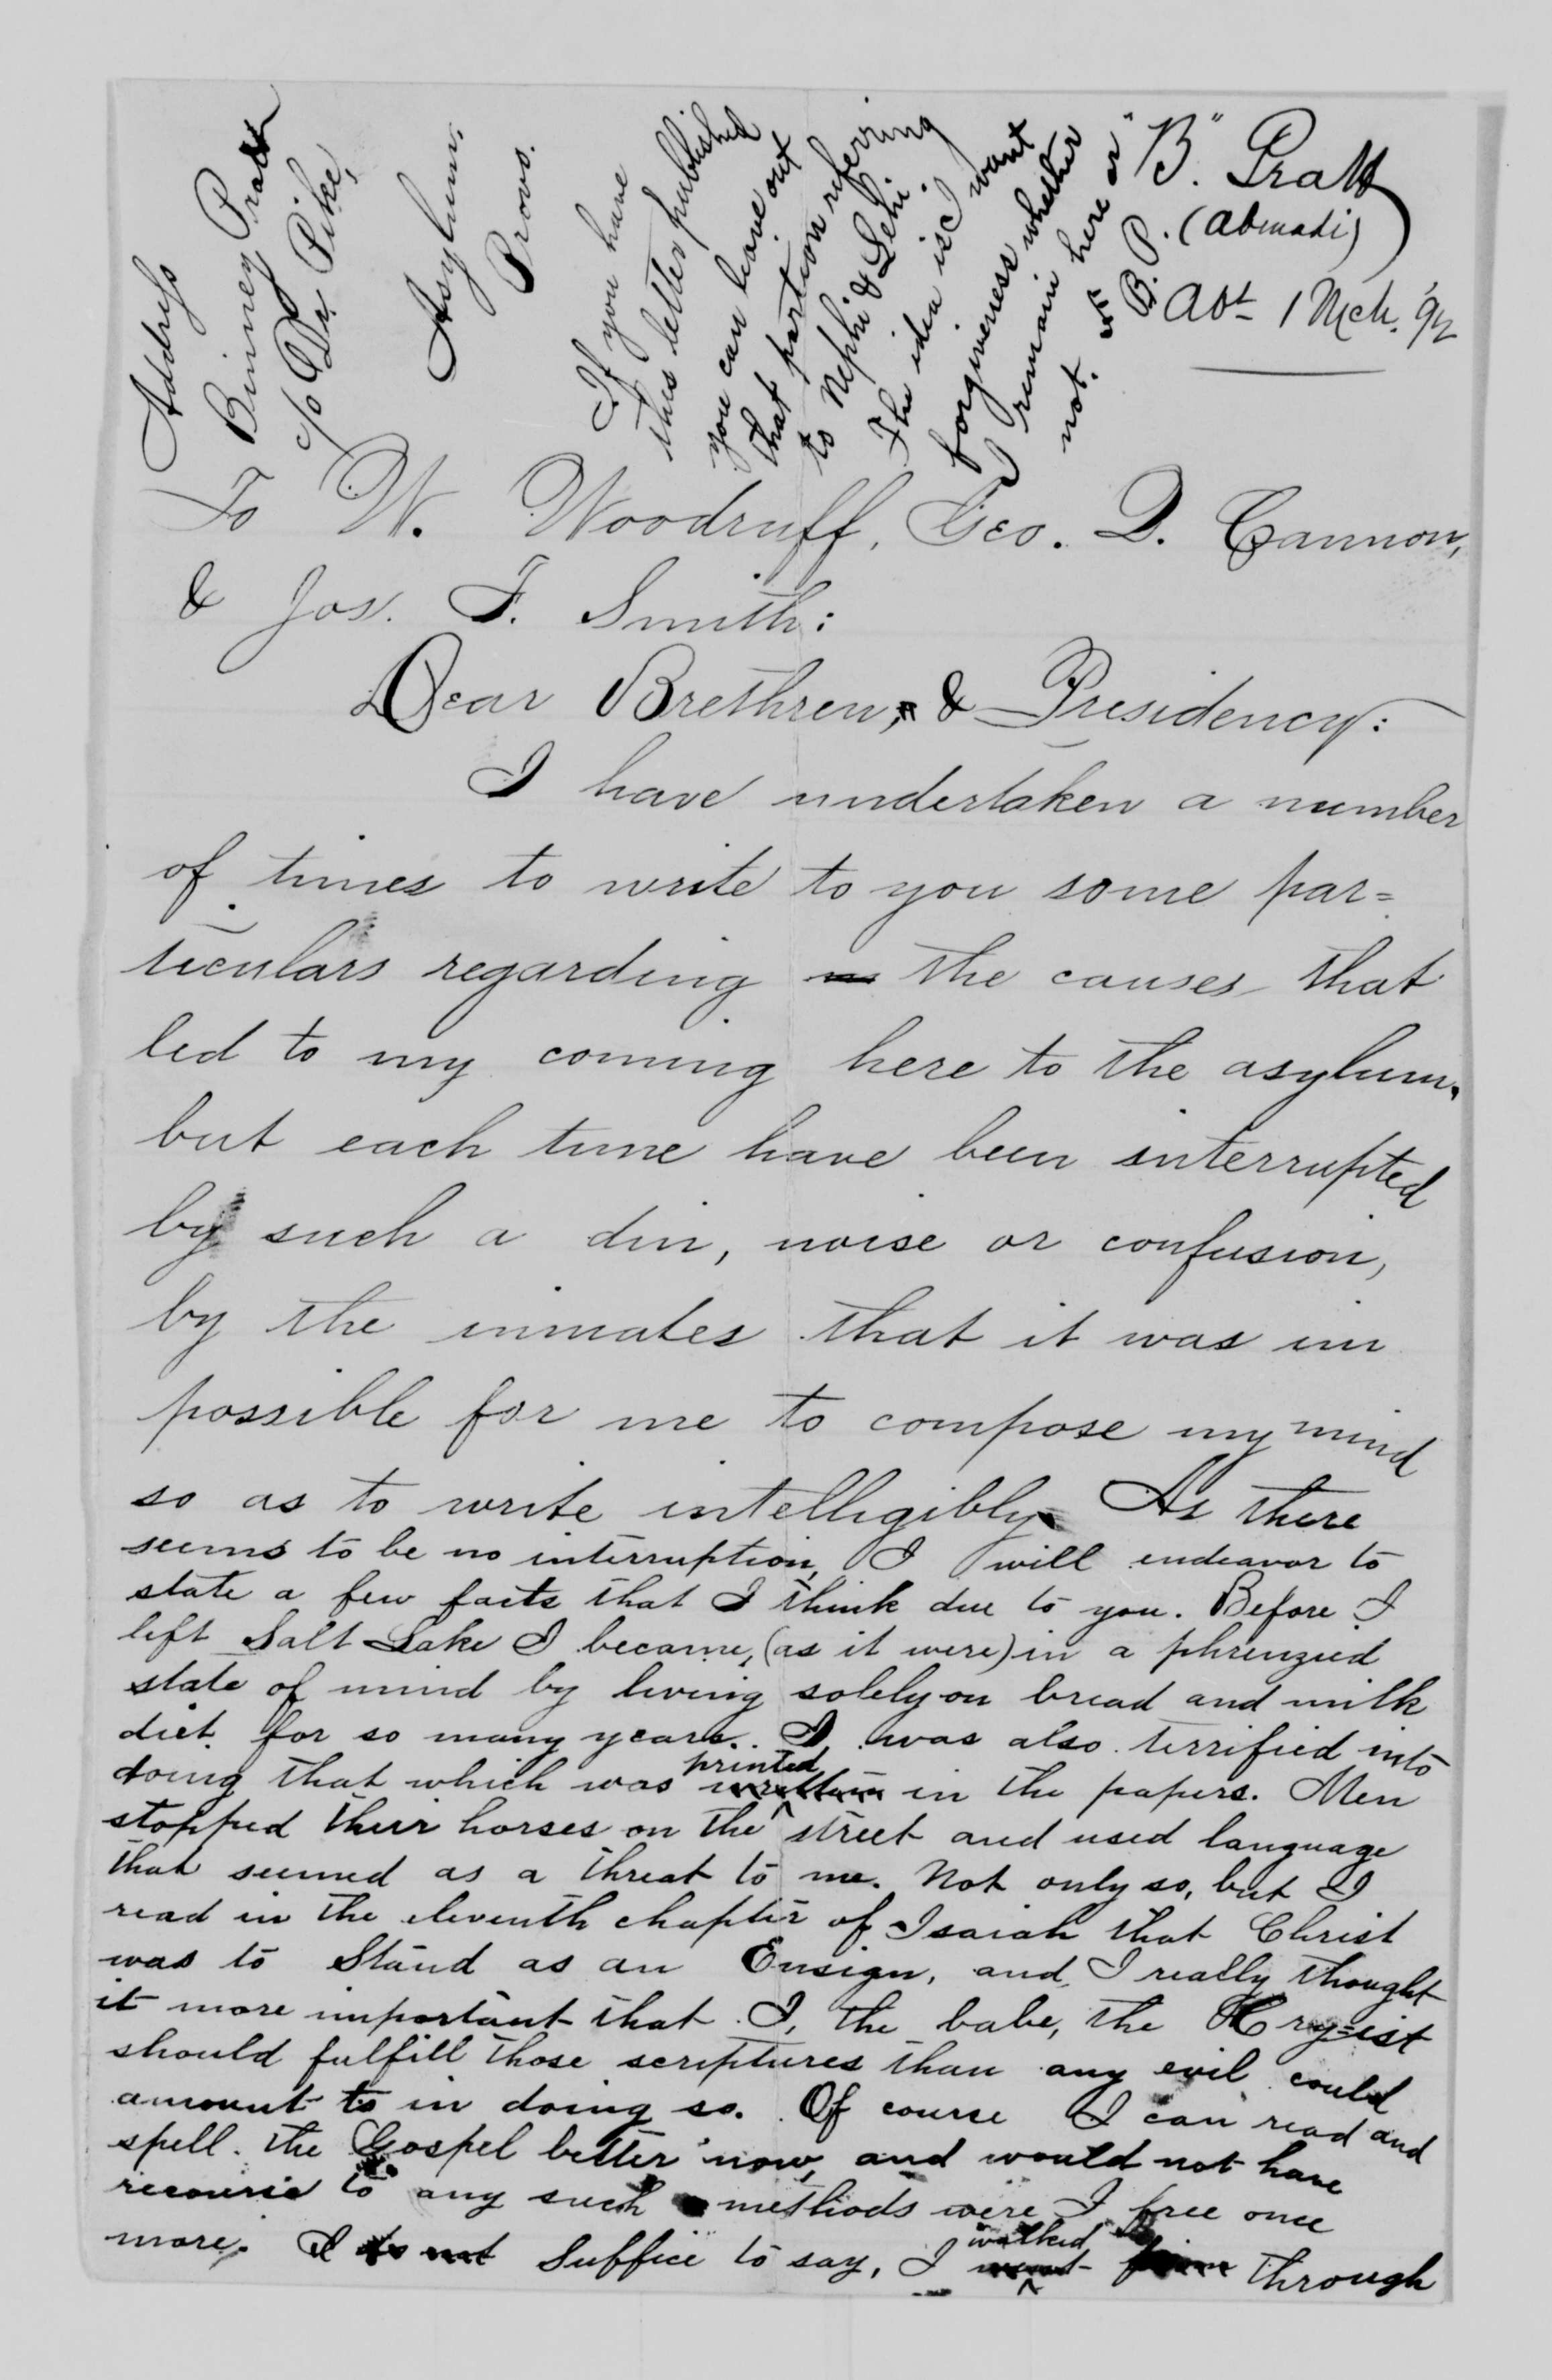 Address
Binney Pratt
c/o Dr. Pike,
Asylum.
Provo.
If you have
this letter published
you can leave out
that portion referring
to Nephi & Lehi.
The idea is I want
forgiveness whether
I remain here or
not. B. P.
"B" Pratt
(abinadi)
abt 1 Mch. '92
To W. Woodruff, Geo. Q. Cannon,
& Jos. F. Smith:
Dear Brethren, & Presidency:
I have undertaken a number
of times to write to you some par=
ticulars regarding the causes that
led to my coming here to the asylum,
but each time have been interrupted
by such a din, noise or confusion,
by the inmates that it was im
possible for me to compose my mind
so as to write intelligibly. As there
seems to be no interruption, I will endeavor to
state a few facts that I think due to you. Before I
left Salt Lake I became, (as it were) in a phrenzied
state of mind by living solely on bread and milk
diet for so many years. I was also terrified into
doing that which was written printed in the papers. Men
stopped their horses on the street and used language
that seemed as a threat to me. Not only so, but I
read in the eleventh chapter of Isaiah that Christ
was to Stand as an Ensign, and I really thought
it more important that I, the babe, the Cry=ist
should fulfill those scriptures than any evil could
amount to in doing so. Of course I can read and
spell the Gospel better now, and would not have
recourse to any such methods were I free once
more. I do not Suffice to say, I went walked from through